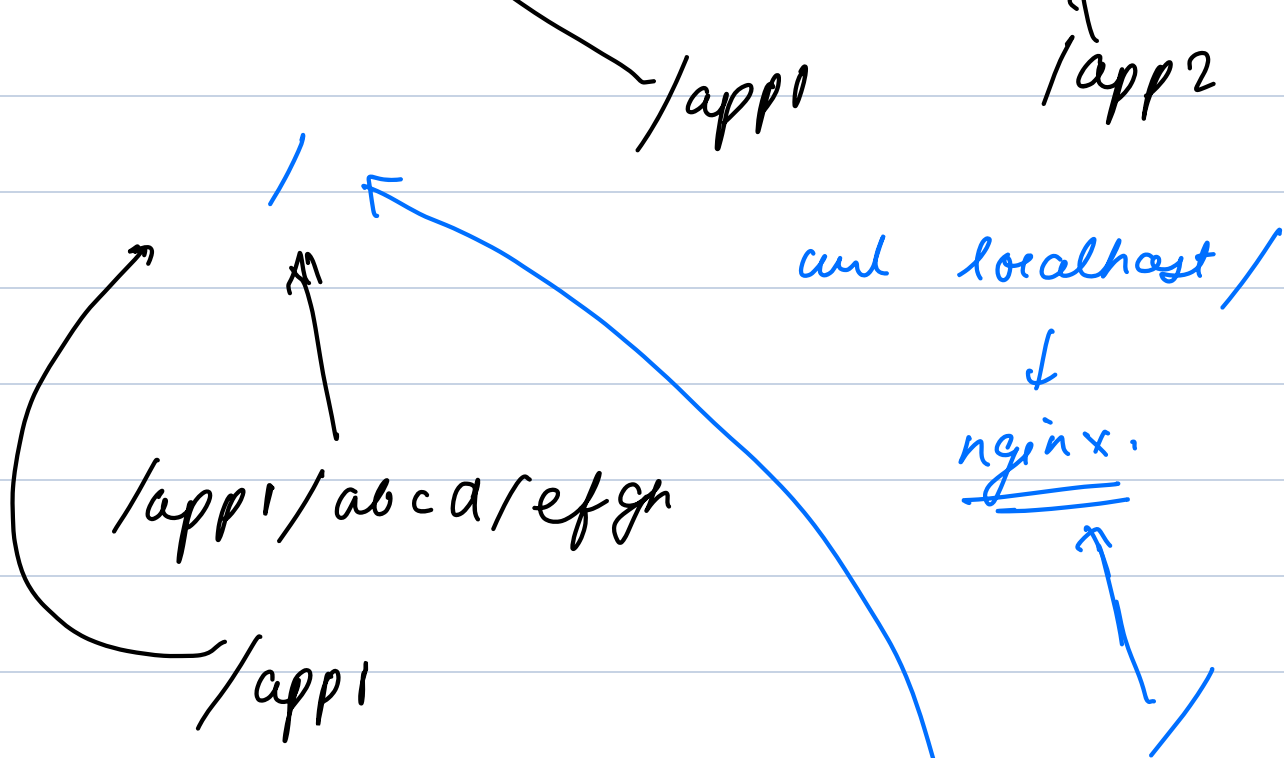 /app1
/app2
/
curl localhost/
nginx.
/app1/abcd/efgh
/app1
/